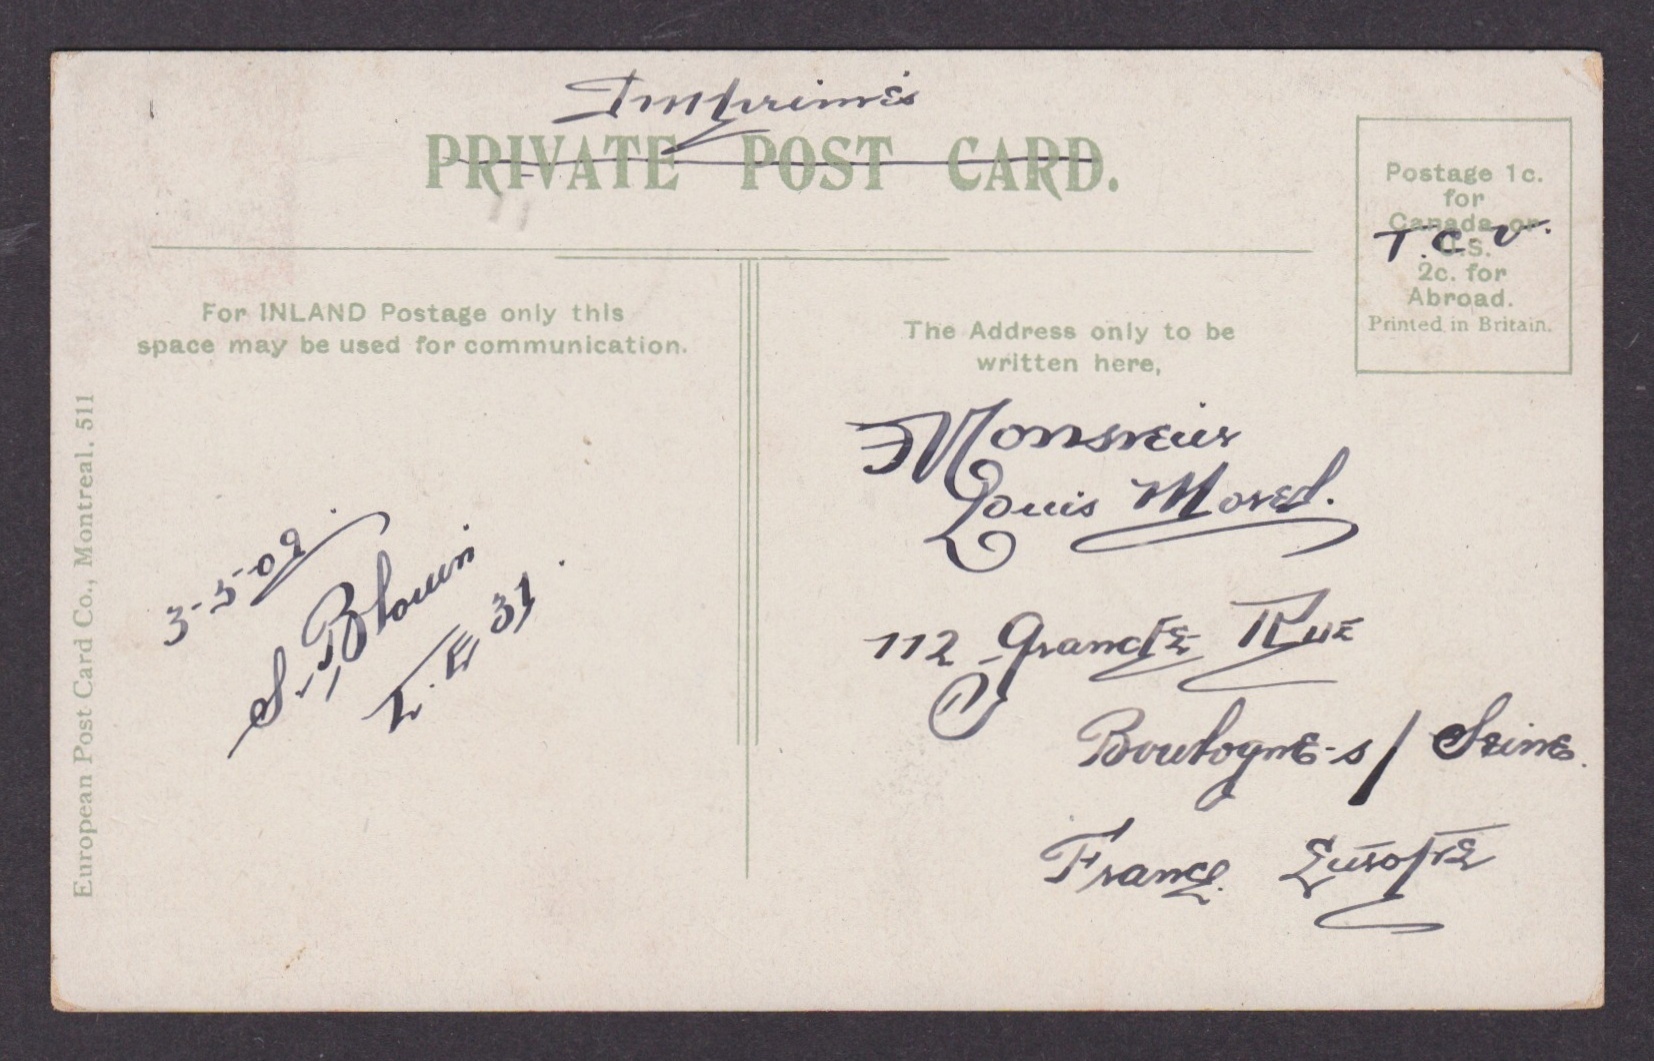 Imprimés
PRIVATE POST CARD.
Postage 1c.
for
Canada or
U.S.
2c. for
Abroad.
Printed in Britain.
T.C.V.
For INLAND Postage only this
space may be used for communication.
The Address only to be
written here,
European Post Card Co., Montreal. 511
3-5-09.
S. Blouin
L.E 31.
Monsieur
Louis Morel.
112 Grande Rue
Boulogne-s/Seine.
France. Europe